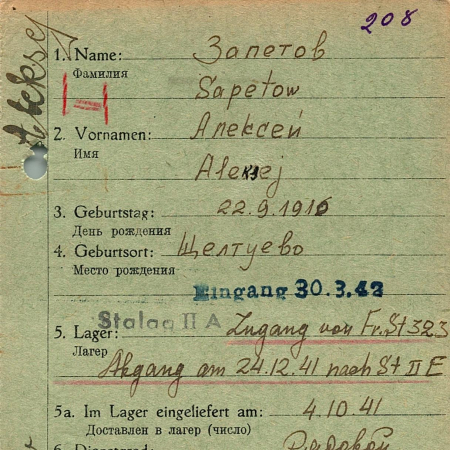 208
Aleksej
1. Name: Запетов
Фамилия
Sapetow
2. Vornamen: Алексей
Имя
Alexej
3. Geburtstag: 22.9.1916
День рождения
4. Geburtsort: Щелтуево
Место рождения
Eingang 30.3.42
Stalag II A
5. Lager: Zugang von Fr. St 323
Лагер
Abgang am 24.12.41 nach St II E
5a. Im Lager eingeliefert am: 4.10.41
Доставлен в лагер (число)
6. Dienstgrad: Рядовой